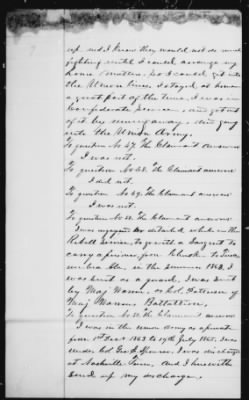 up and I knew they would not do much
fighting until I could arrange my
home matters, so I could get into
the Union lines. I stayed at home
a great part of the time, I was in
Confederate Service, and got out
of it by running away, and going
into the Union Army.
To question No 47. The Claimant answers
I was not.
To question No 48. The Claimant answers
I did not.
To question No 49. The Claimant answers
I was not.
To question No 50. The Claimant answers
I was detailed, while in the
Rebel service, to go with a Sargent to
carry a prisoner, from to
in the summer 1863. I
was sent as a guard, I was sent
by Maj
Maj Battallion,
To question No 51. The Claimant answers
I was in the union army as a private
from 1st Sept 1863 to 19th July 1865. I was
under Col Geo E Spencer, I was discharged
at Nashville Tenn, And I herewith
send up my discharge,